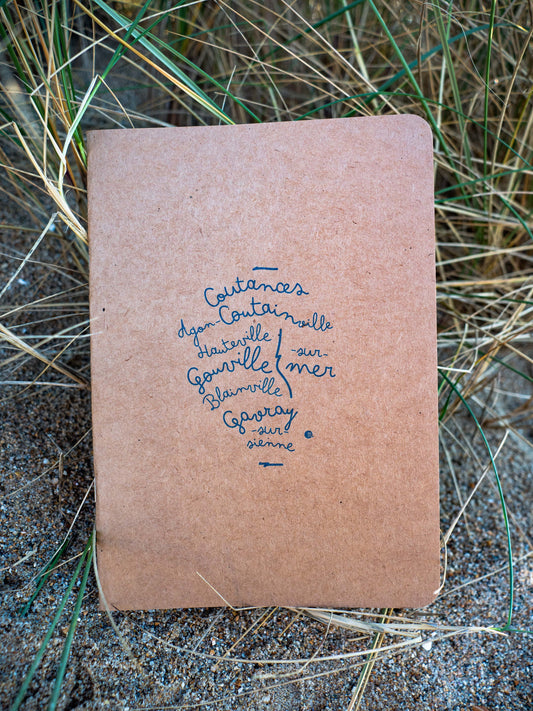 Coutances
Agon-Coutainville
Hauteville
Gouville
Blainville
-sur-
mer
Gavray
-sur-
sienne